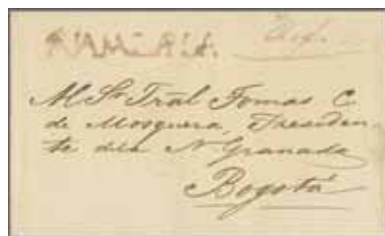 M Sr. Tral Tomas C.
de Mosquera, Presiden-
te dela N. Granada
Bogotá